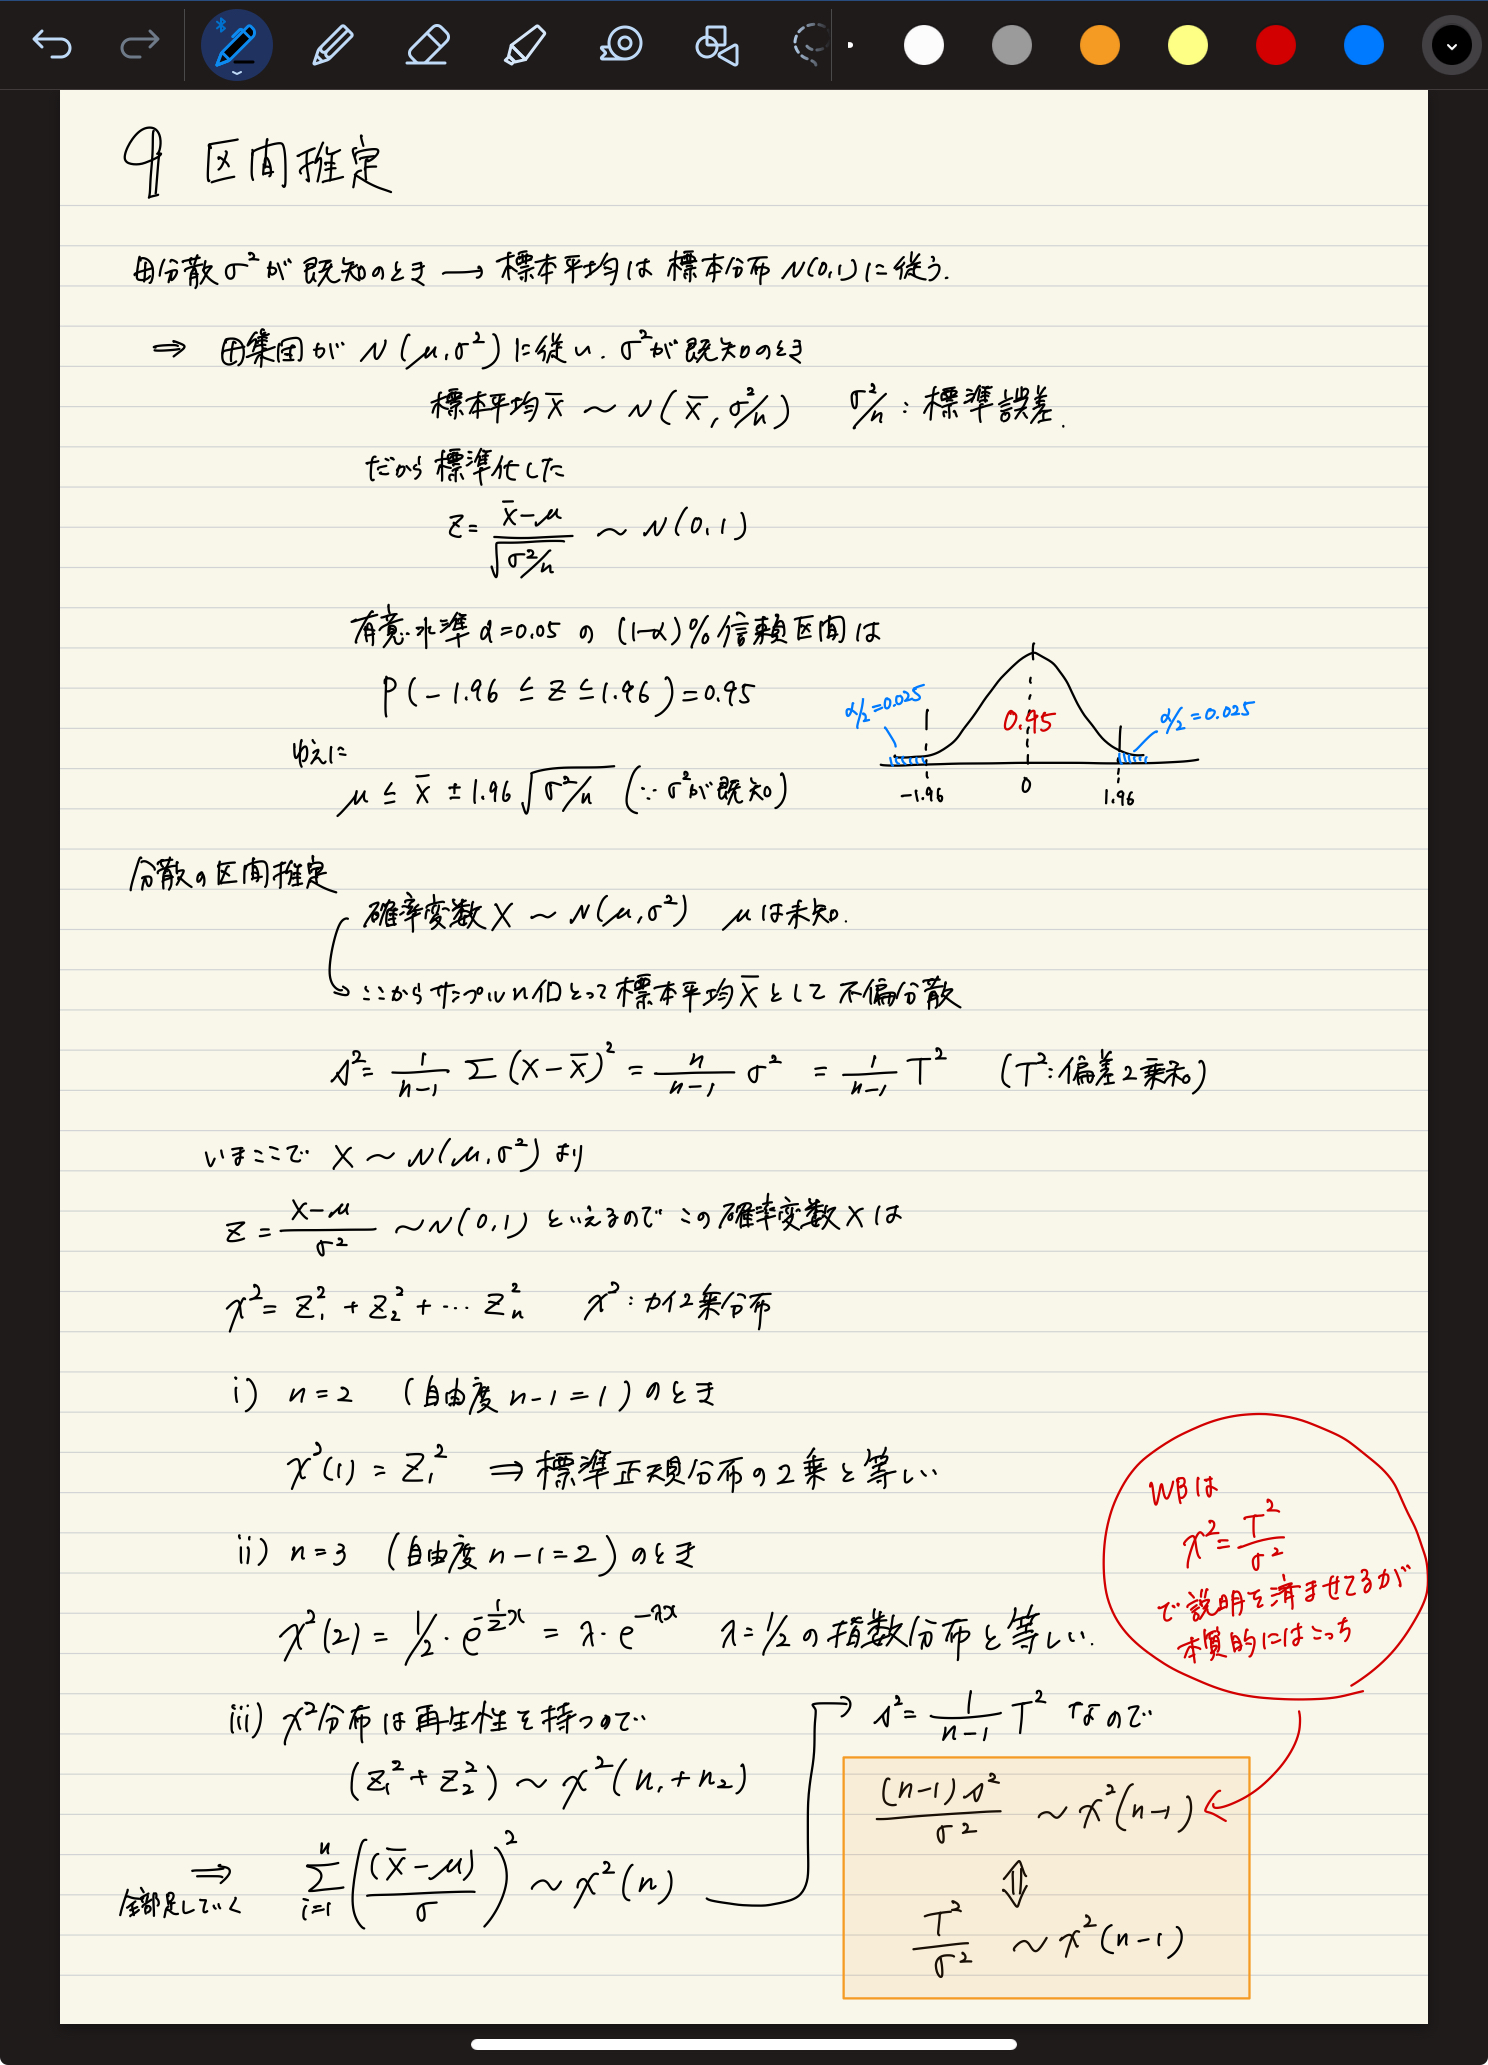 9 区間推定
母分散σ²が既知のとき → 標本平均は標本分布 N(0,1)に従う.
⇒ 母集団が N(μ,σ²)に従い. σ²が既知のとき
標本平均x̄ ~ N(x̄, σ²/n) σ²/n : 標準誤差.
だから標準化した
z = (x̄-μ)/√(σ²/n) ~ N(0,1)
有意水準α=0.05 の (1-α)%信頼区間は
P(-1.96 ≤ z ≤ 1.96) = 0.95
α/2=0.025
0.95
α/2=0.025
-1.96 0 1.96
ゆえに
μ ≤ x̄ ± 1.96√(σ²/n) (∵ σ²が既知)
分散の区間推定
確率変数X ~ N(μ,σ²) μは未知.
ここからサンプルn個とって標本平均x̄として不偏分散
s² = 1/(n-1) Σ(x-x̄)² = n/(n-1) σ² = 1/(n-1) T² (T²:偏差2乗和)
いまここで X ~ N(μ,σ²)より
z = (x-μ)/σ² ~ N(0,1) といえるのでこの確率変数Xは
χ² = z₁² + z₂² + … zₙ² χ²:カイ2乗分布
i) n=2 (自由度n-1=1)のとき
χ²(1) = z₁² ⇒ 標準正規分布の2乗と等しい
ii) n=3 (自由度n-1=2)のとき
χ²(2) = 1/2・e^(-1/2 x) = λ・e^(-λx) λ=1/2の指数分布と等しい.
WBは
χ² = T²/σ²
で説明を済ませてるが
本質的にはこっち
iii) χ²分布は再生性を持つので
(z₁²+z₂²) ~ χ²(n₁+n₂)
⇒ 全部足していく Σ[i=1→n] ((x̄-μ)/σ)² ~ χ²(n)
→ s² = 1/(n-1) T² なので
(n-1)s²/σ² ~ χ²(n-1)
⇕
T²/σ² ~ χ²(n-1)